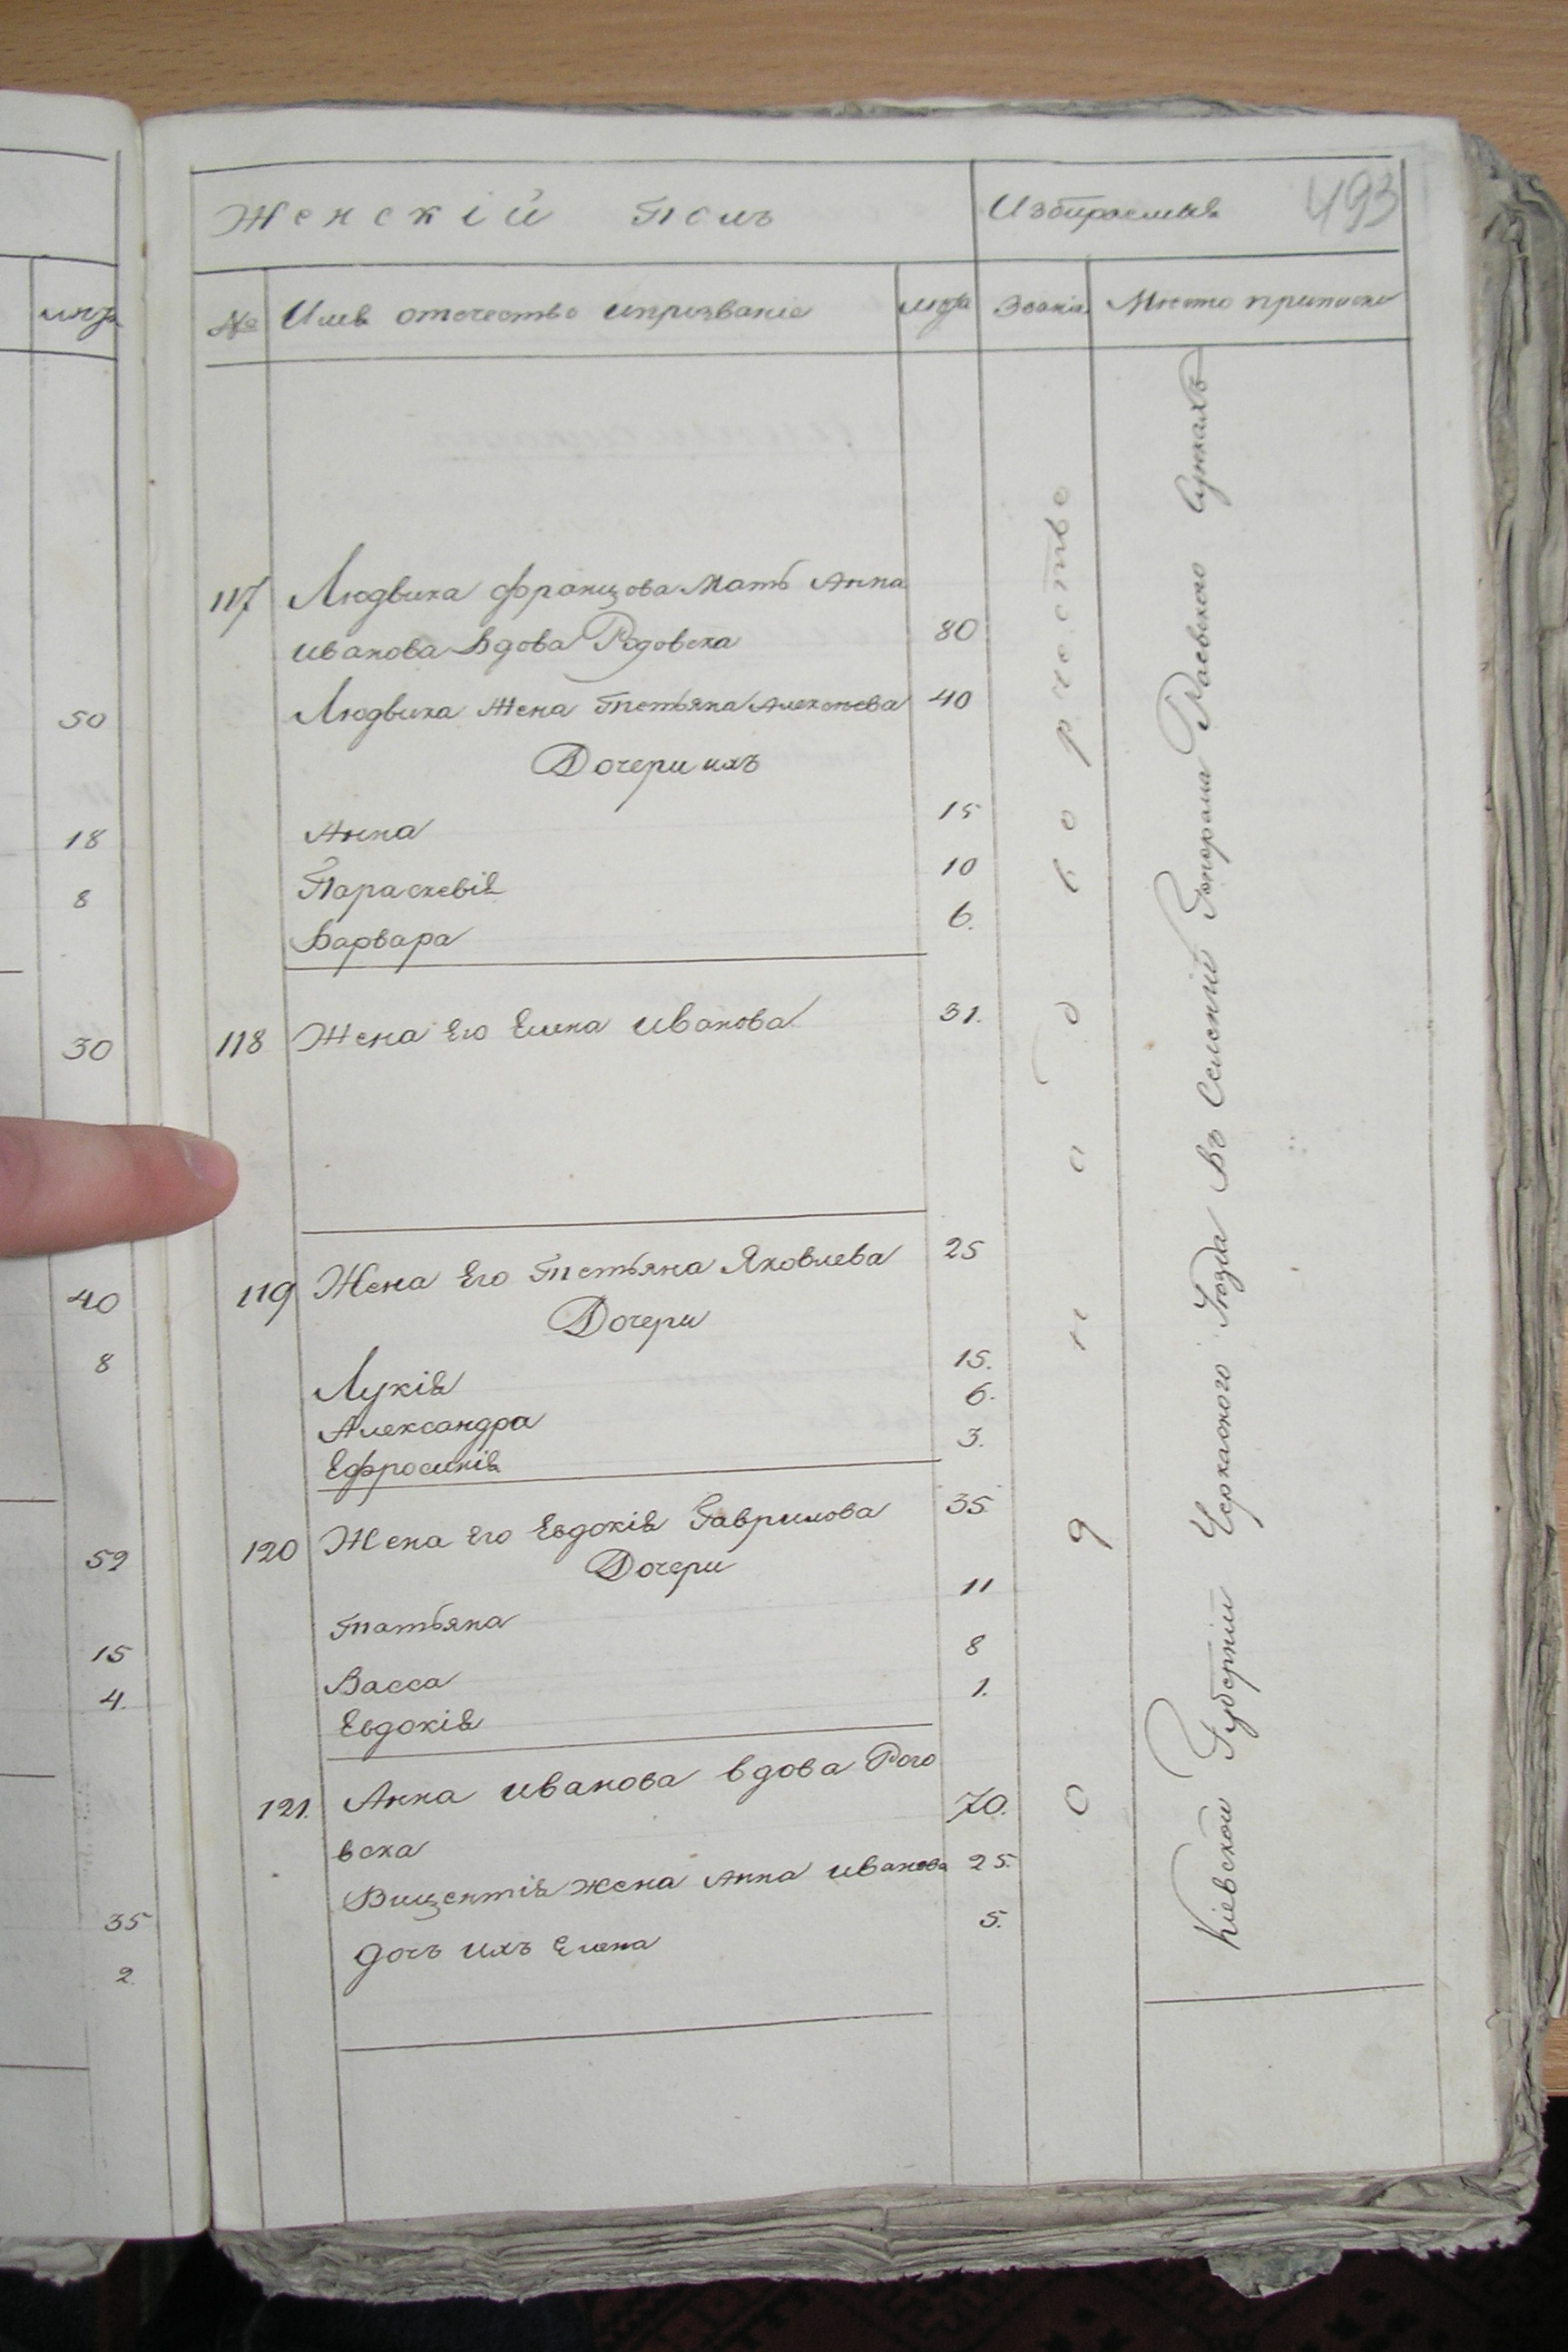 лѣта
50
18
8
30
40
8
52
15
4.
35
2
Женскій Полъ
Избираемыя
493
№ Имя отечество ипрозваніе лѣта Званія Место приписки
117 Людвика Францова Мать Анна
иванова Вдова Радовска 80
Людвика Жена Тетьяна Алексѣева 40
Дочери ихъ
Анна 15
Параскевія 10
Варвара 6.
118 Жена Его Елена иванова 31.
119 Жена Его Тетьяна Яковлева 25
Дочери
Лукія 15.
Александра 6.
Ефросинія 3.
120 Жена Его Евдокія Гаврилова 35.
Дочери
Татьяна 11
Васса 8
Евдокія 1.
121. Анна иванова вдова Рого
вска 70.
Вицентія жена Анна иванова 25.
дочъ ихъ Елена 5.
однодворчество
Кіевской Губерніи Черкаского Уезда Въ Селеніи Генерала Раевского Сункахъ